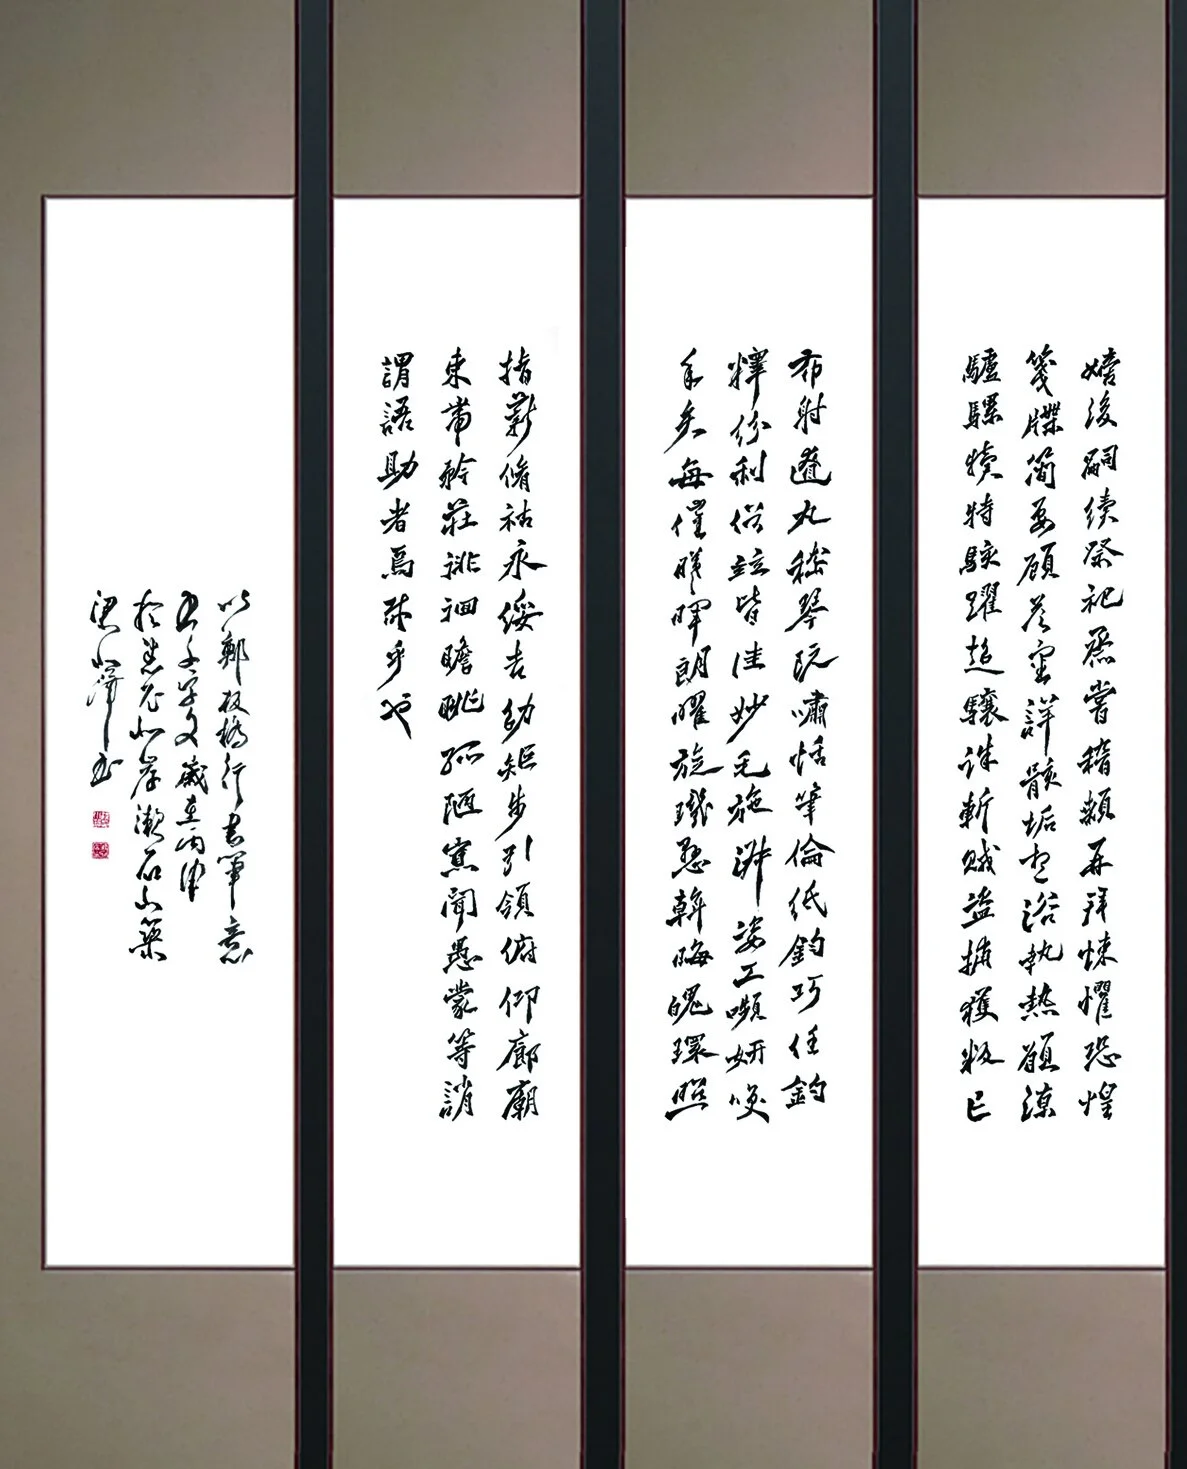 嫡後嗣續祭祀烝嘗稽顙再拜悚懼恐惶
箋牒簡要顧答審詳骸垢想浴執熱願涼
驢騾犢特駭躍超驤誅斬賊盜捕獲叛亡
布射遼丸嵇琴阮嘯恬筆倫紙鈞巧任釣
釋紛利俗竝皆佳妙毛施淑姿工嚬妍咲
年矢每催曦暉朗曜旋璣懸斡晦魄環照
指薪脩祜永綏吉劭矩步引領俯仰廊廟
束帶矜莊徘徊瞻眺孤陋寡聞愚蒙等誚
謂語助者焉哉乎也
以鄭板橋行書筆意
書千字文歲在丙申
於北岸漱石山築
梁小書